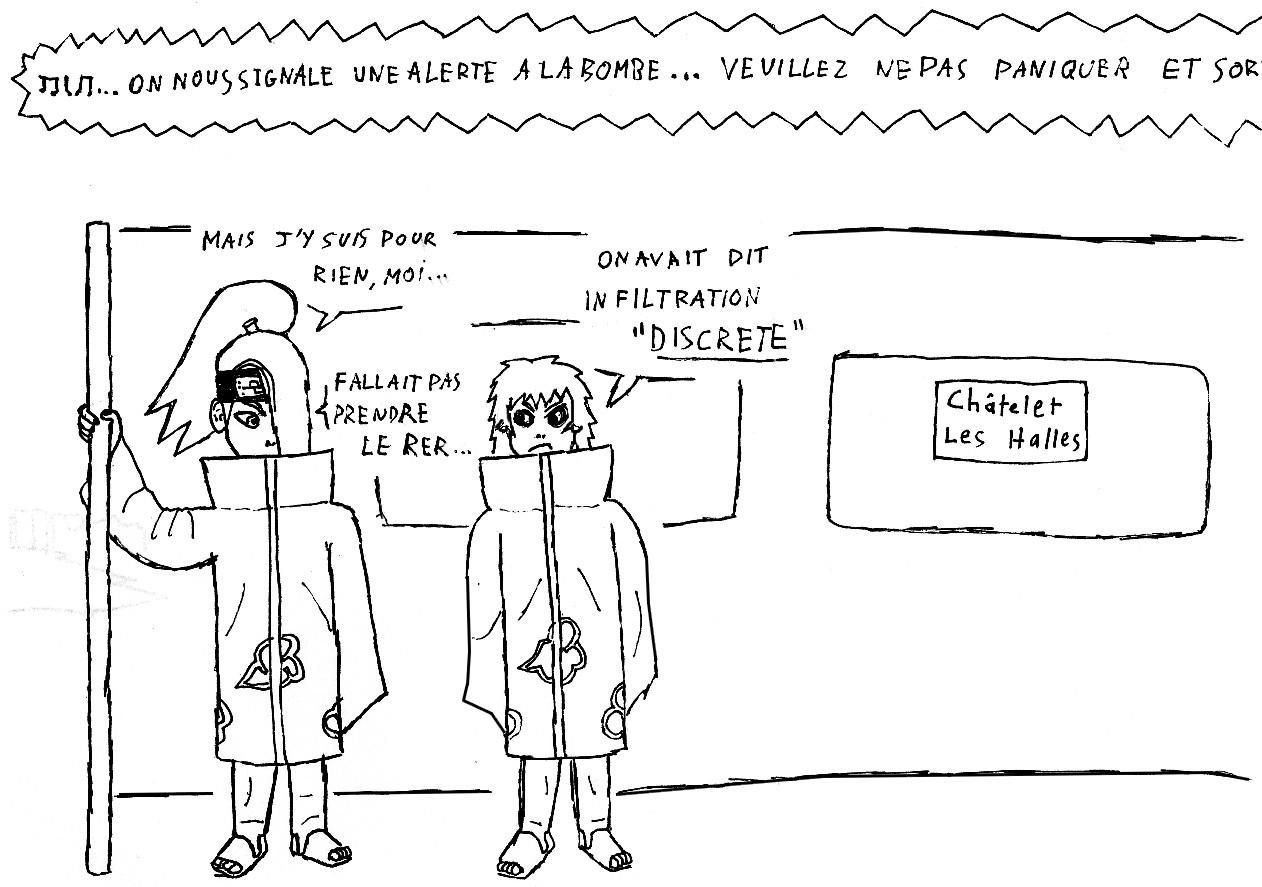 ... ON NOUS SIGNALE UNE ALERTE A LA BOMBE... VEUILLEZ NE PAS PANIQUER ET SOR
MAIS J'Y SUIS POUR
RIEN, MOI...
ON AVAIT DIT
INFILTRATION
"DISCRETE"
FALLAIT PAS
PRENDRE
LE RER...
Châtelet
Les Halles